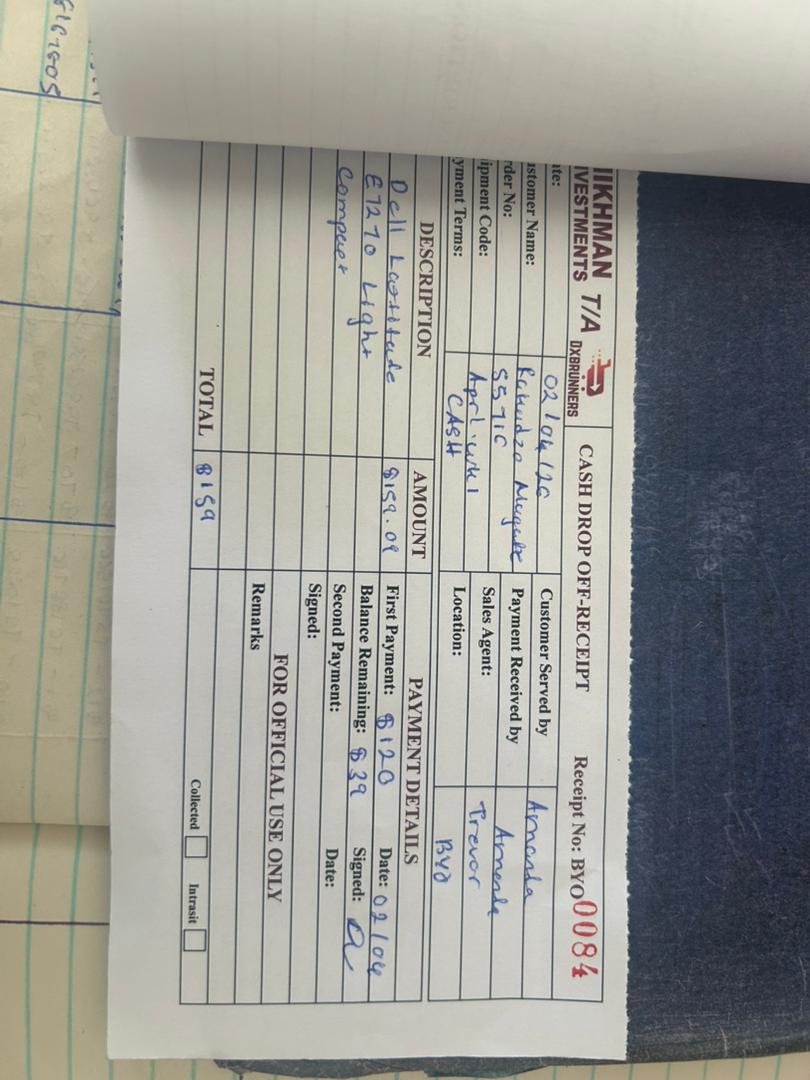 IIKHMAN
VESTMENTS T/A DXBRUNNERS
CASH DROP OFF-RECEIPT Receipt No: BYO0084
ate: 02/04/26
stomer Name:
rder No: S571C
ipment Code: April wk1
yment Terms: CASH
Customer Served by Amanda
Payment Received by Amanda
Sales Agent: Trevor
Location: BYO
DESCRIPTION AMOUNT
Dell Lattitude $159.09
E7270 Light
Compact
TOTAL $159
PAYMENT DETAILS
First Payment: $120 Date: 02/04
Balance Remaining: $39 Signed:
Second Payment: Date:
Signed:
FOR OFFICIAL USE ONLY
Remarks
Collected Intrasit